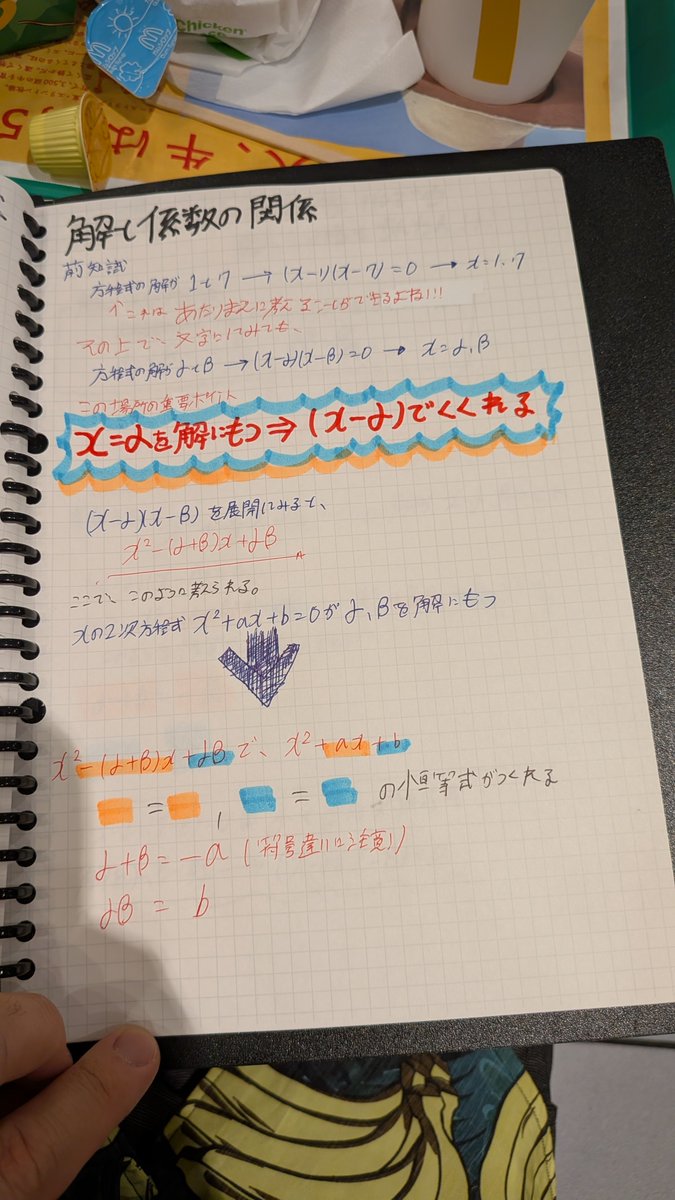 Chicken
解と係数の関係
前知識
方程式の解が 1と7 → (x-1)(x-7)=0 → x=1、7
↑これは あたりまえに考えることができるよね!!
その上で、文字にしてみても、
方程式の解がαとβ → (x-α)(x-β)=0 → x=α、β
この場所の重要ポイント
x=αを解にもつ⇒(x-α)でくくれる
(x-α)(x-β)を展開してみると、
x²-(α+β)x+αβ
ここで、このように考えられる。
xの2次方程式 x²+ax+b=0がα、βを解にもつ
x²-(α+β)x+αβで、x²+ax+b
= , = の恒等式がつくれる
α+β=-a (符号違いに注意)
αβ = b